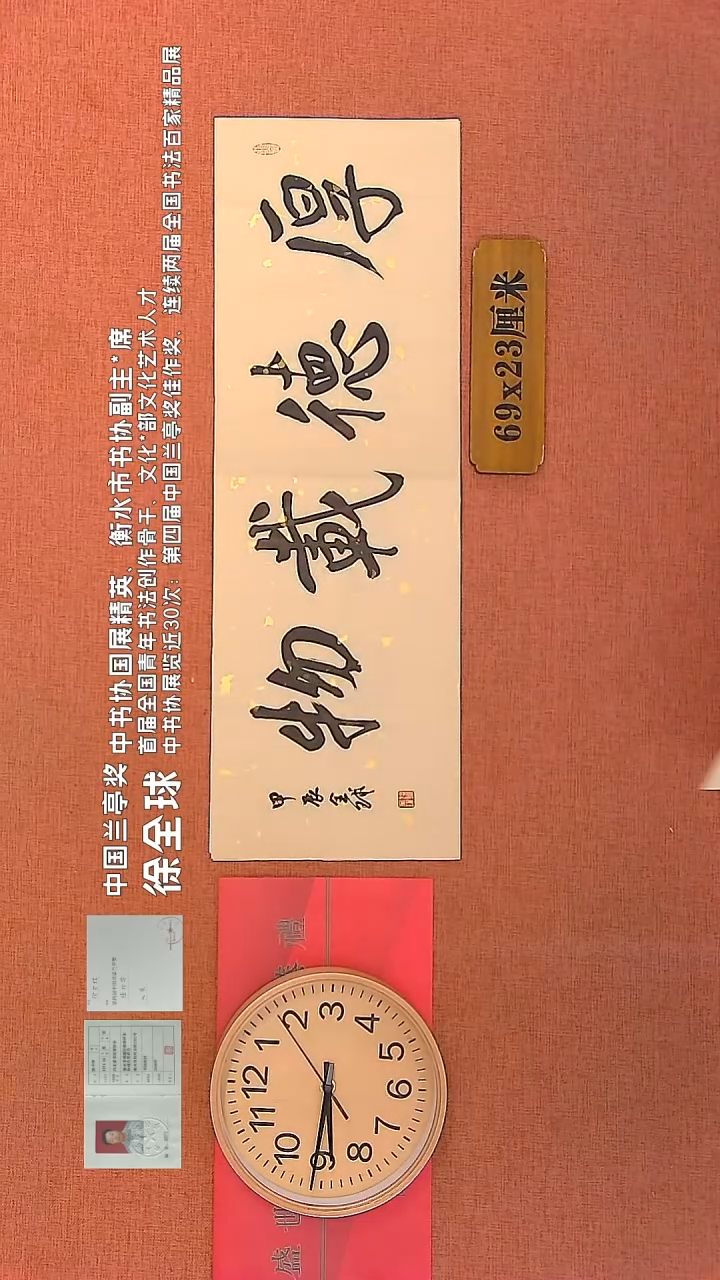 中国兰亭奖 中书协国展精英、衡水市书协副主*席
徐全球
首届全国青年书法创作骨干、文化*部文化艺术人才
中书协展览近30次：第四届中国兰亭奖佳作奖、连续两届全国书法百家精品展
厚德載物
甲辰全球
69x23厘米
盛世
禮
12
1
2
3
4
5
6
7
8
9
10
11